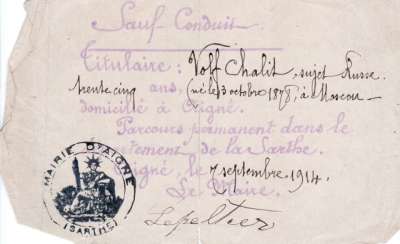 Sauf Conduit
Titulaire : Volf Chalit, sujet Russe
trente cinq ans, (né le 3 octobre 1878, à Moscou —
domicilié à Aigné.
Parcours permanent dans le
département de la Sarthe.
Aigné, le 7 septembre 1914.
Le Maire.
Lepeltier
MAIRIE D'AIGNÉ
(SARTHE)